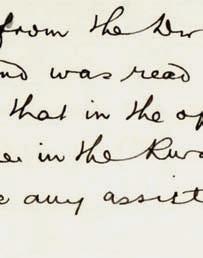 from the
and was read
that in the op
in the
any assist